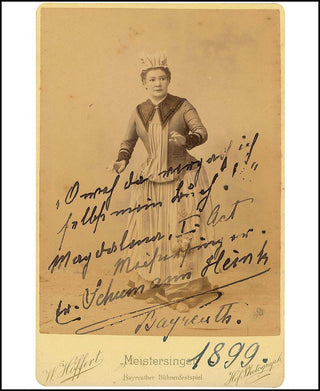 "O weh da vergass ich
selbst mein Buch!"
Magdalena, I Act
Meistersinger.
Er. Schumann Heink
Bayreuth.
1899.
W. Höffert
Meistersinger
Bayreuther Bühnenfestspiel.
Hof-Photograph